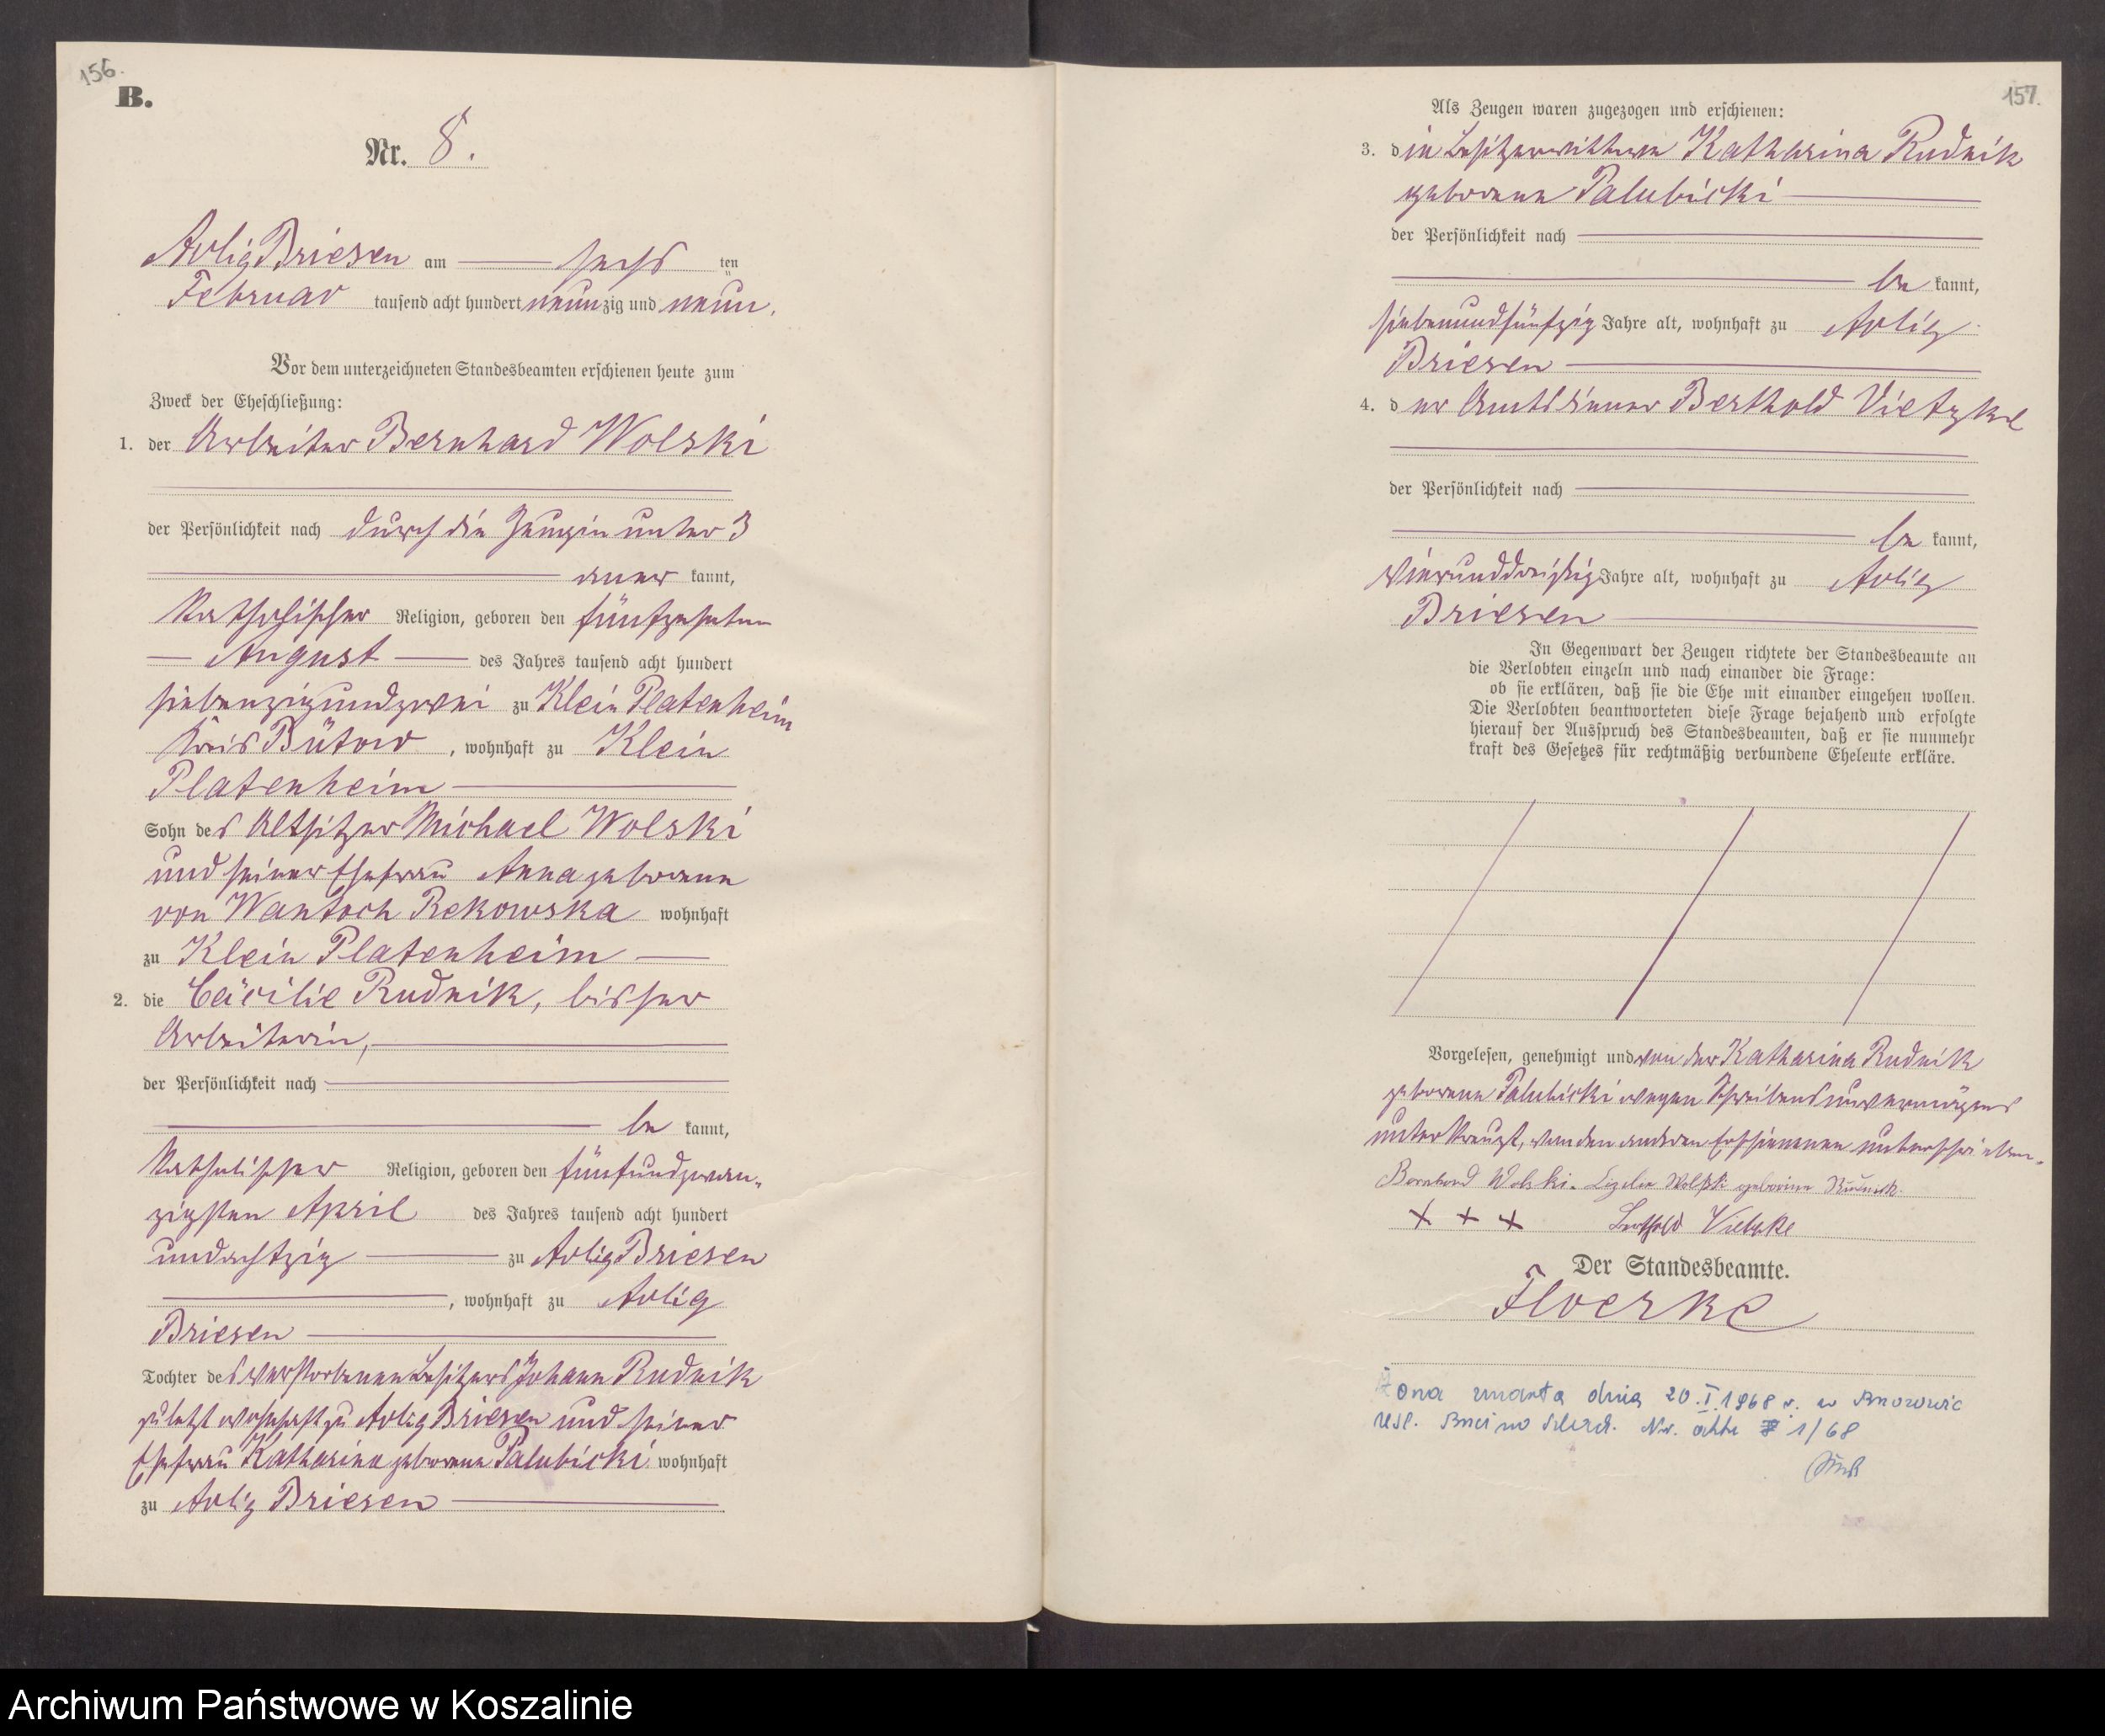 156.
B.
Nr. 8.
Adlig Briesen am sechsten
Februar tausend acht hundert neunzig und neun.
Vor dem unterzeichneten Standesbeamten erschienen heute zum
Zweck der Eheschließung:
1. der Arbeiter Bernhard Wolski
der Persönlichkeit nach durch die Zeugin unter 3
aner kannt,
katholischer Religion, geboren den fünfzehnten
August des Jahres tausend acht hundert
siebenzigundzwei zu Klein Platenheim
Kreis Bütow, wohnhaft zu Klein
Platenheim
Sohn des Altsitzer Michael Wolski
und seiner Ehefrau Anna geborene
von Wantoch Rekowska wohnhaft
zu Klein Platenheim
2. die Cäcilie Rudnik, bisher
Arbeiterin,
der Persönlichkeit nach
be kannt,
katholischer Religion, geboren den fünfundzwan-
zigsten April des Jahres tausend acht hundert
undachtzig zu Adlig Briesen
, wohnhaft zu Adlig
Briesen
Tochter des verstorbenen Besitzers Johann Rudnik
zuletzt wohnhaft zu Adlig Briesen und seiner
Ehefrau Katharina geborene Palubicki wohnhaft
zu Adlig Briesen
157.
Als Zeugen waren zugezogen und erschienen:
3. die Besitzerwittwe Katharina Rudnik
geborene Palubicki
der Persönlichkeit nach
be kannt,
siebenundfünfzig Jahre alt, wohnhaft zu Adlig
Briesen
4. der Amtsdiener Berthold Vietzke
der Persönlichkeit nach
be kannt,
vierunddreißig Jahre alt, wohnhaft zu Adlig
Briesen
In Gegenwart der Zeugen richtete der Standesbeamte an
die Verlobten einzeln und nach einander die Frage:
ob sie erklären, daß sie die Ehe mit einander eingehen wollen.
Die Verlobten beantworteten diese Frage bejahend und erfolgte
hierauf der Ausspruch des Standesbeamten, daß er sie nunmehr
kraft des Gesetzes für rechtmäßig verbundene Eheleute erkläre.
Vorgelesen, genehmigt und von der Katharina Rudnik
geborene Palubicki wegen Schreibensunvermögens
unterkreuzt, von den anderen Erschienenen unterschrieben.
Bernhard Wolski. Wolski geborene Rudnik.
+ + + Berthold Vietzke
Der Standesbeamte.
Floerke
Żona zmarła dnia 20.I.1968 r. w
USC. Nr. aktu 1/68
Archiwum Państwowe w Koszalinie